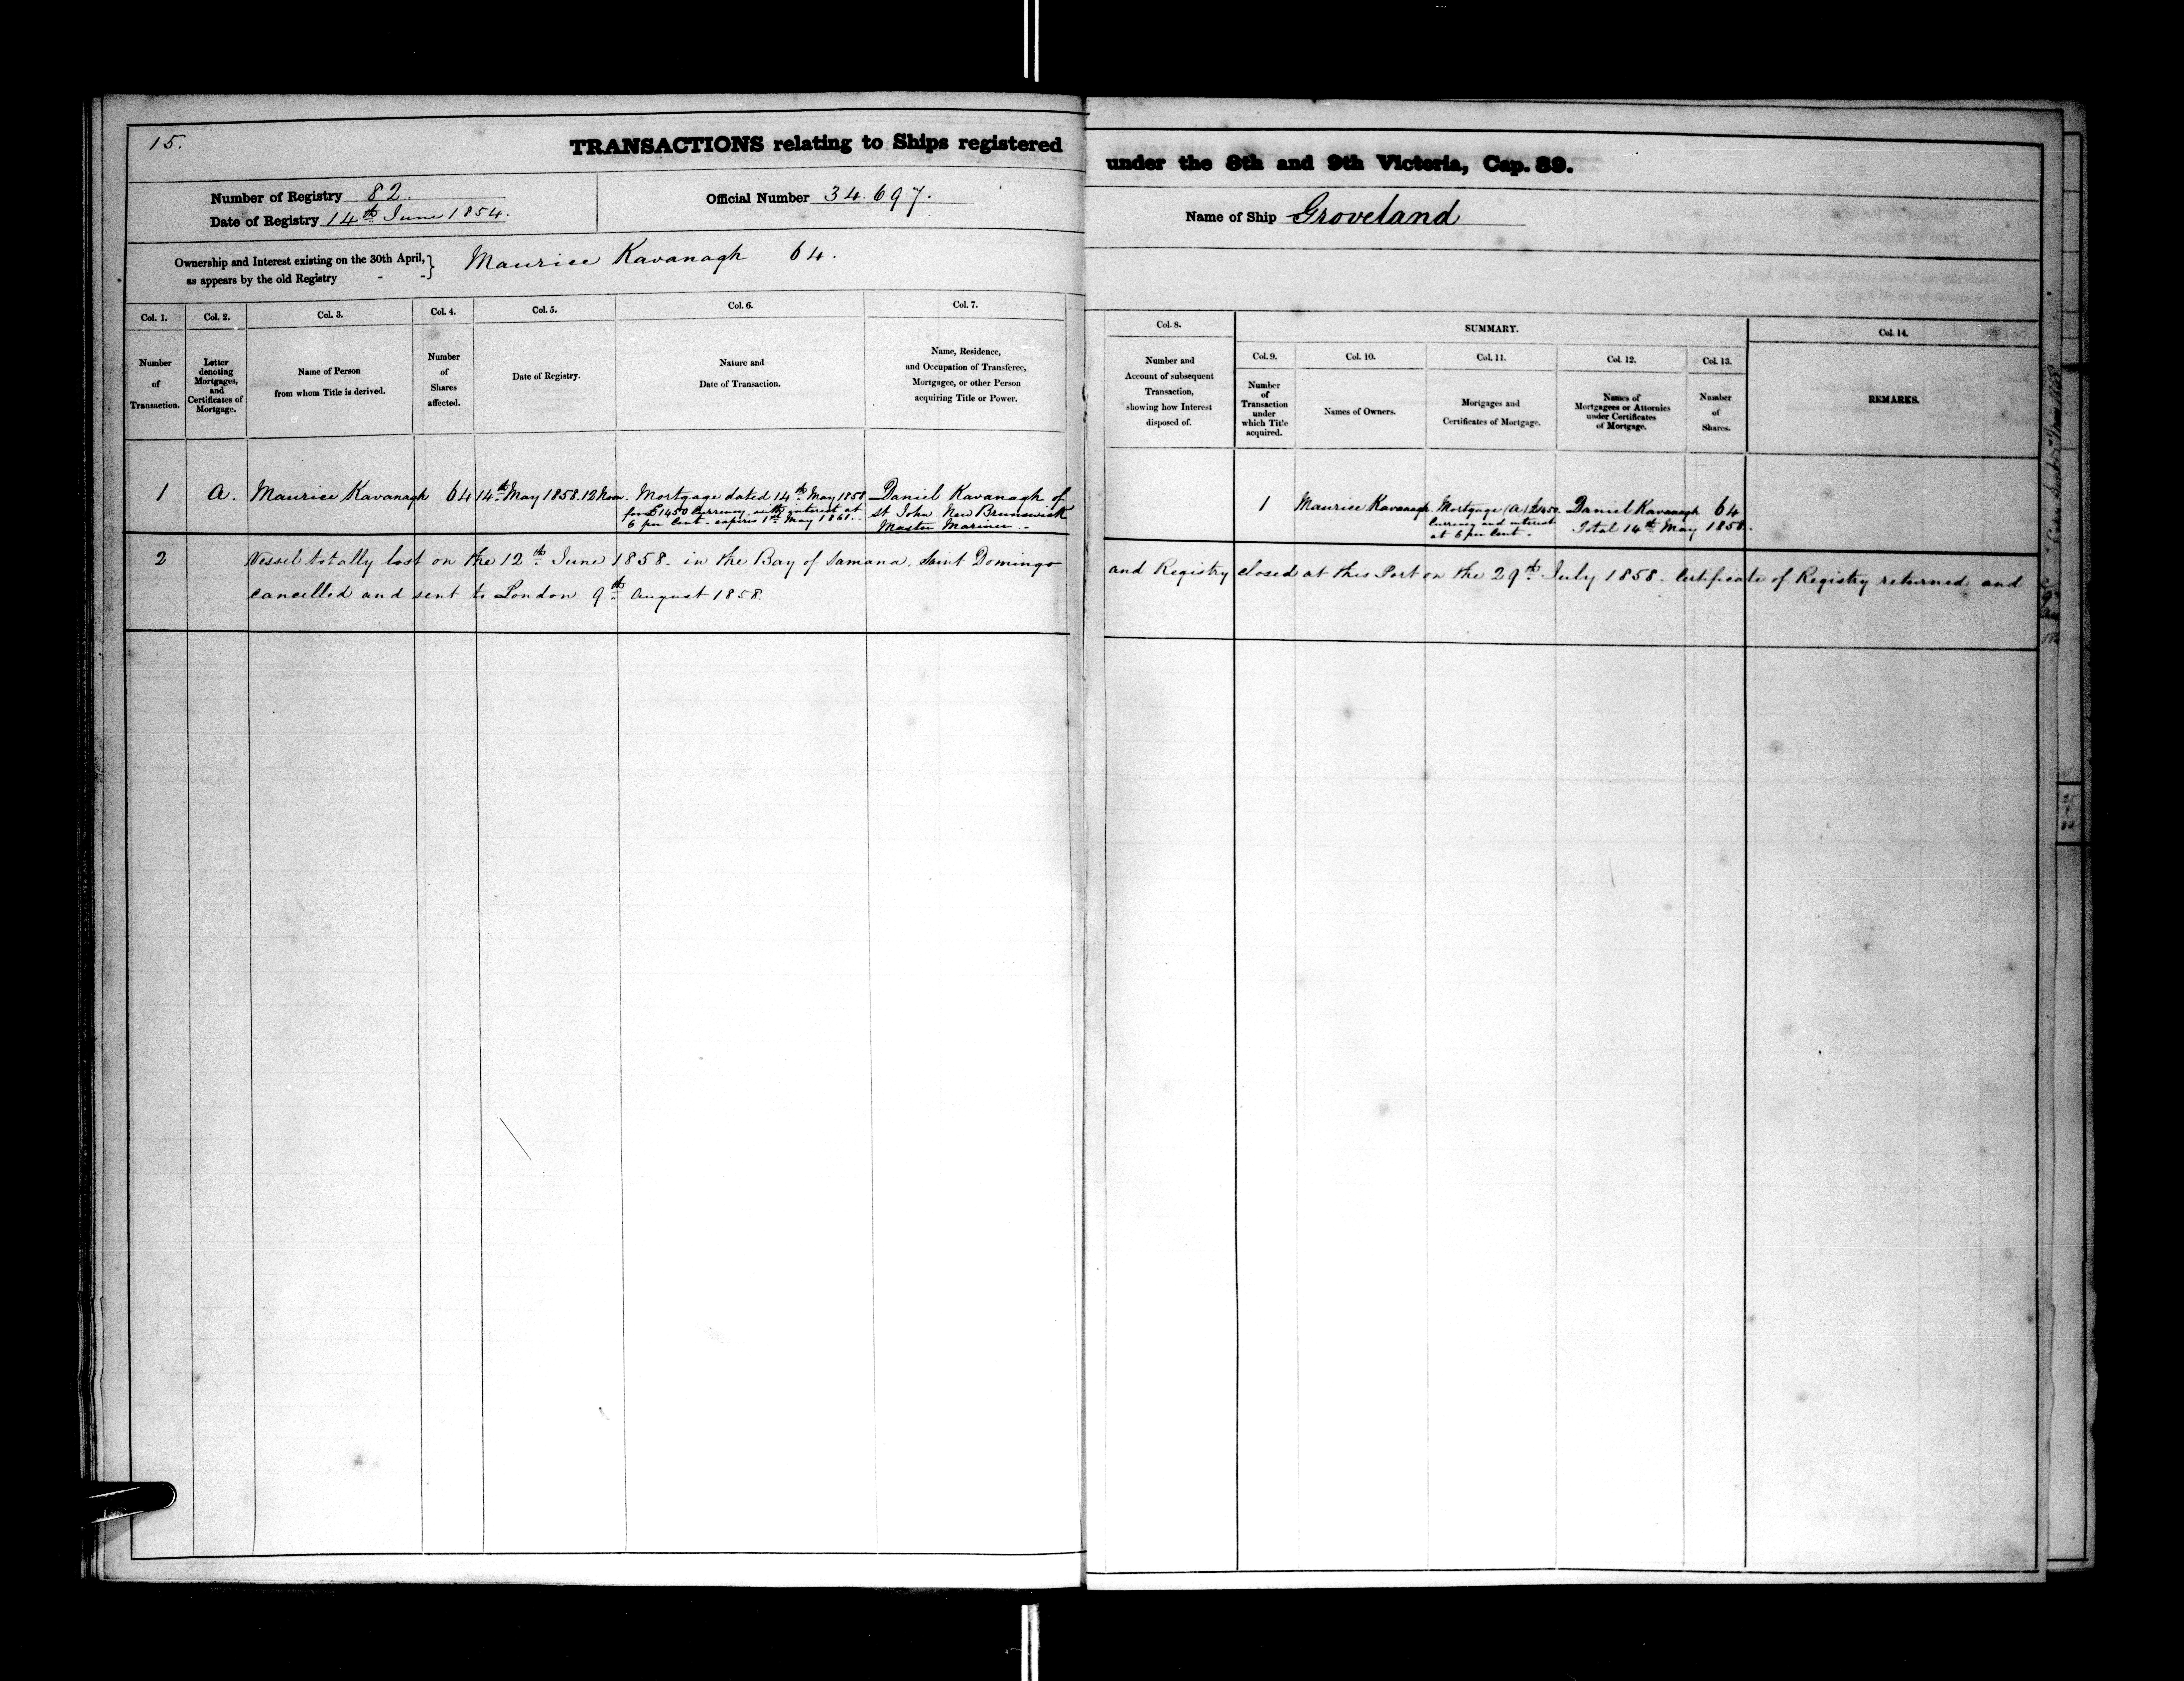 15.
TRANSACTIONS relating to Ships registered under the 8th and 9th Victoria, Cap. 89.
Number of Registry 82.
Date of Registry 14th June 1854.
Official Number 34.697.
Name of Ship Groveland
Ownership and Interest existing on the 30th April, } Maurice Kavanagh 64.
as appears by the old Registry -
Col. 1.
Number
of
Transaction.
Col. 2.
Letter
denoting
Mortgages,
and
Certificates of
Mortgage.
Col. 3.
Name of Person
from whom Title is derived.
Col. 4.
Number
of
Shares
affected.
Col. 5.
Date of Registry.
Col. 6.
Nature and
Date of Transaction.
Col. 7.
Name, Residence,
and Occupation of Transferee,
Mortgagee, or other Person
acquiring Title or Power.
Col. 8.
Number and
Account of subsequent
Transaction,
showing how Interest
disposed of.
SUMMARY.
Col. 9.
Number
of
Transaction
under
which Title
acquired.
Col. 10.
Names of Owners.
Col. 11.
Mortgages and
Certificates of Mortgage.
Col. 12.
Names of
Mortgagees or Attornies
under Certificates
of Mortgage.
Col. 13.
Number
of
Shares.
Col. 14.
REMARKS.
1
A.
Maurice Kavanagh
64
14th May 1858. 12 Noon.
Mortgage dated 14th May 1858
for £1450 Currency with interest at
6 per Cent - expires 1st May 1861.-
Daniel Kavanagh of
St John New Brunswick
Master Mariner.-
1
Maurice Kavanagh
Mortgage (A) £1450.
Currency and interest
at 6 per Cent -
Daniel Kavanagh 64
Total 14th May 1858.
2
Vessel totally lost on the 12th June 1858. in the Bay of Samana. Saint Domingo and Registry closed at this Port on the 29th July 1858. Certificate of Registry returned and
Cancelled and sent to London 9th August 1858.